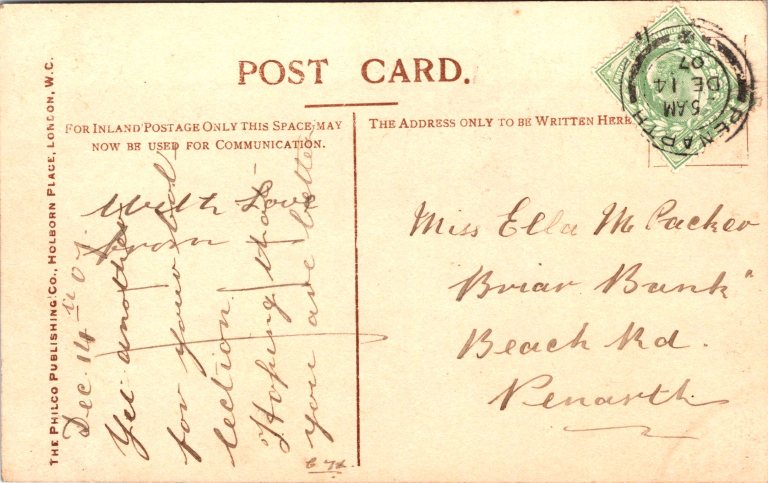 POST CARD.
FOR INLAND POSTAGE ONLY THIS SPACE MAY
NOW BE USED FOR COMMUNICATION.
THE ADDRESS ONLY TO BE WRITTEN HERE
THE PHILCO PUBLISHING CO., HOLBORN PLACE, LONDON, W.C.
PENARTH
5 AM
DE 14
07
With Love
from
Dec. 14th 07.
Yet another
for your col-
lection.
Hoping that
you are better
Miss Ella M Packer
Briar Bank"
Beach Rd.
Penarth